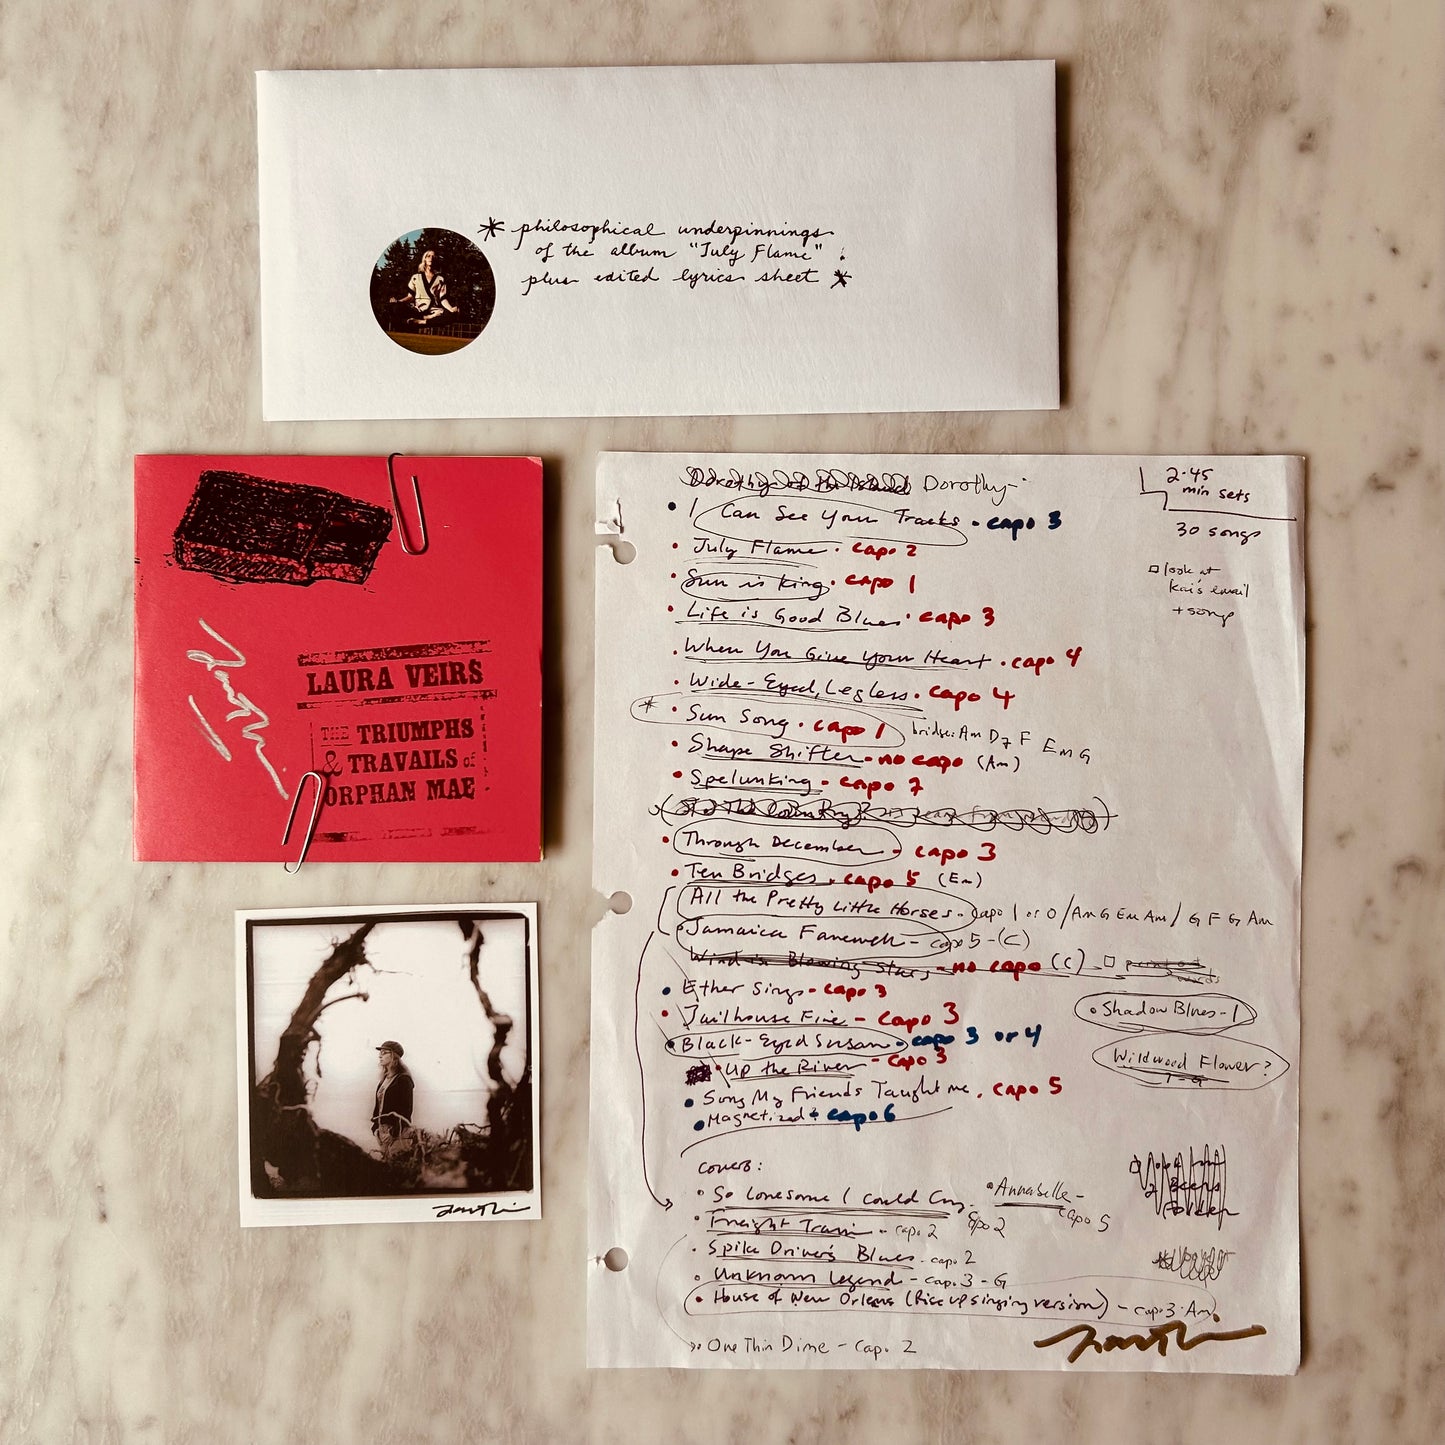 * philosophical underpinnings
of the album "July Flame"
plus edited lyrics sheet *
LAURA VEIRS
THE TRIUMPHS
& TRAVAILS of
ORPHAN MAE
Dorothy
2-45
min sets
30 songs
look at
Kai's email
+ songs
• I Can See Your Tracks • capo 3
• July Flame • capo 2
• Sun is King • capo 1
• Life is Good Blues • capo 3
• When You Give Your Heart • capo 4
• Wide-Eyed, Legless • capo 4
* • Sun Song • capo 1 bridge: Am D7 F Em G
• Shape Shifter - no capo (Am)
• Spelunking - capo 7
• Through December - capo 3
• Ten Bridges - capo 5 (Em)
All the Pretty Little Horses - capo 1 or 0 / Am G Em Am / G F G Am
• Jamaica Farewell - capo 5 - (C)
Wind is Blowing Stars - no capo (C)
• Ether Sings - capo 3
• Jailhouse Fire - capo 3
• Black-Eyed Susan - capo 3 or 4
• Up the River - capo 3
• Song My Friends Taught me • capo 5
• Magnetized • capo 6
• Shadow Blues - 1
Wildwood Flower?
covers:
• So Lonesome I Could Cry - capo 2
• Annabelle - capo 5
• Freight Train - capo 2
• Spike Driver's Blues - capo 2
• Unknown Legend - capo 3 - G
• House of New Orleans (Rise up singing version) - capo 3 • Am
• One Thin Dime - capo 2